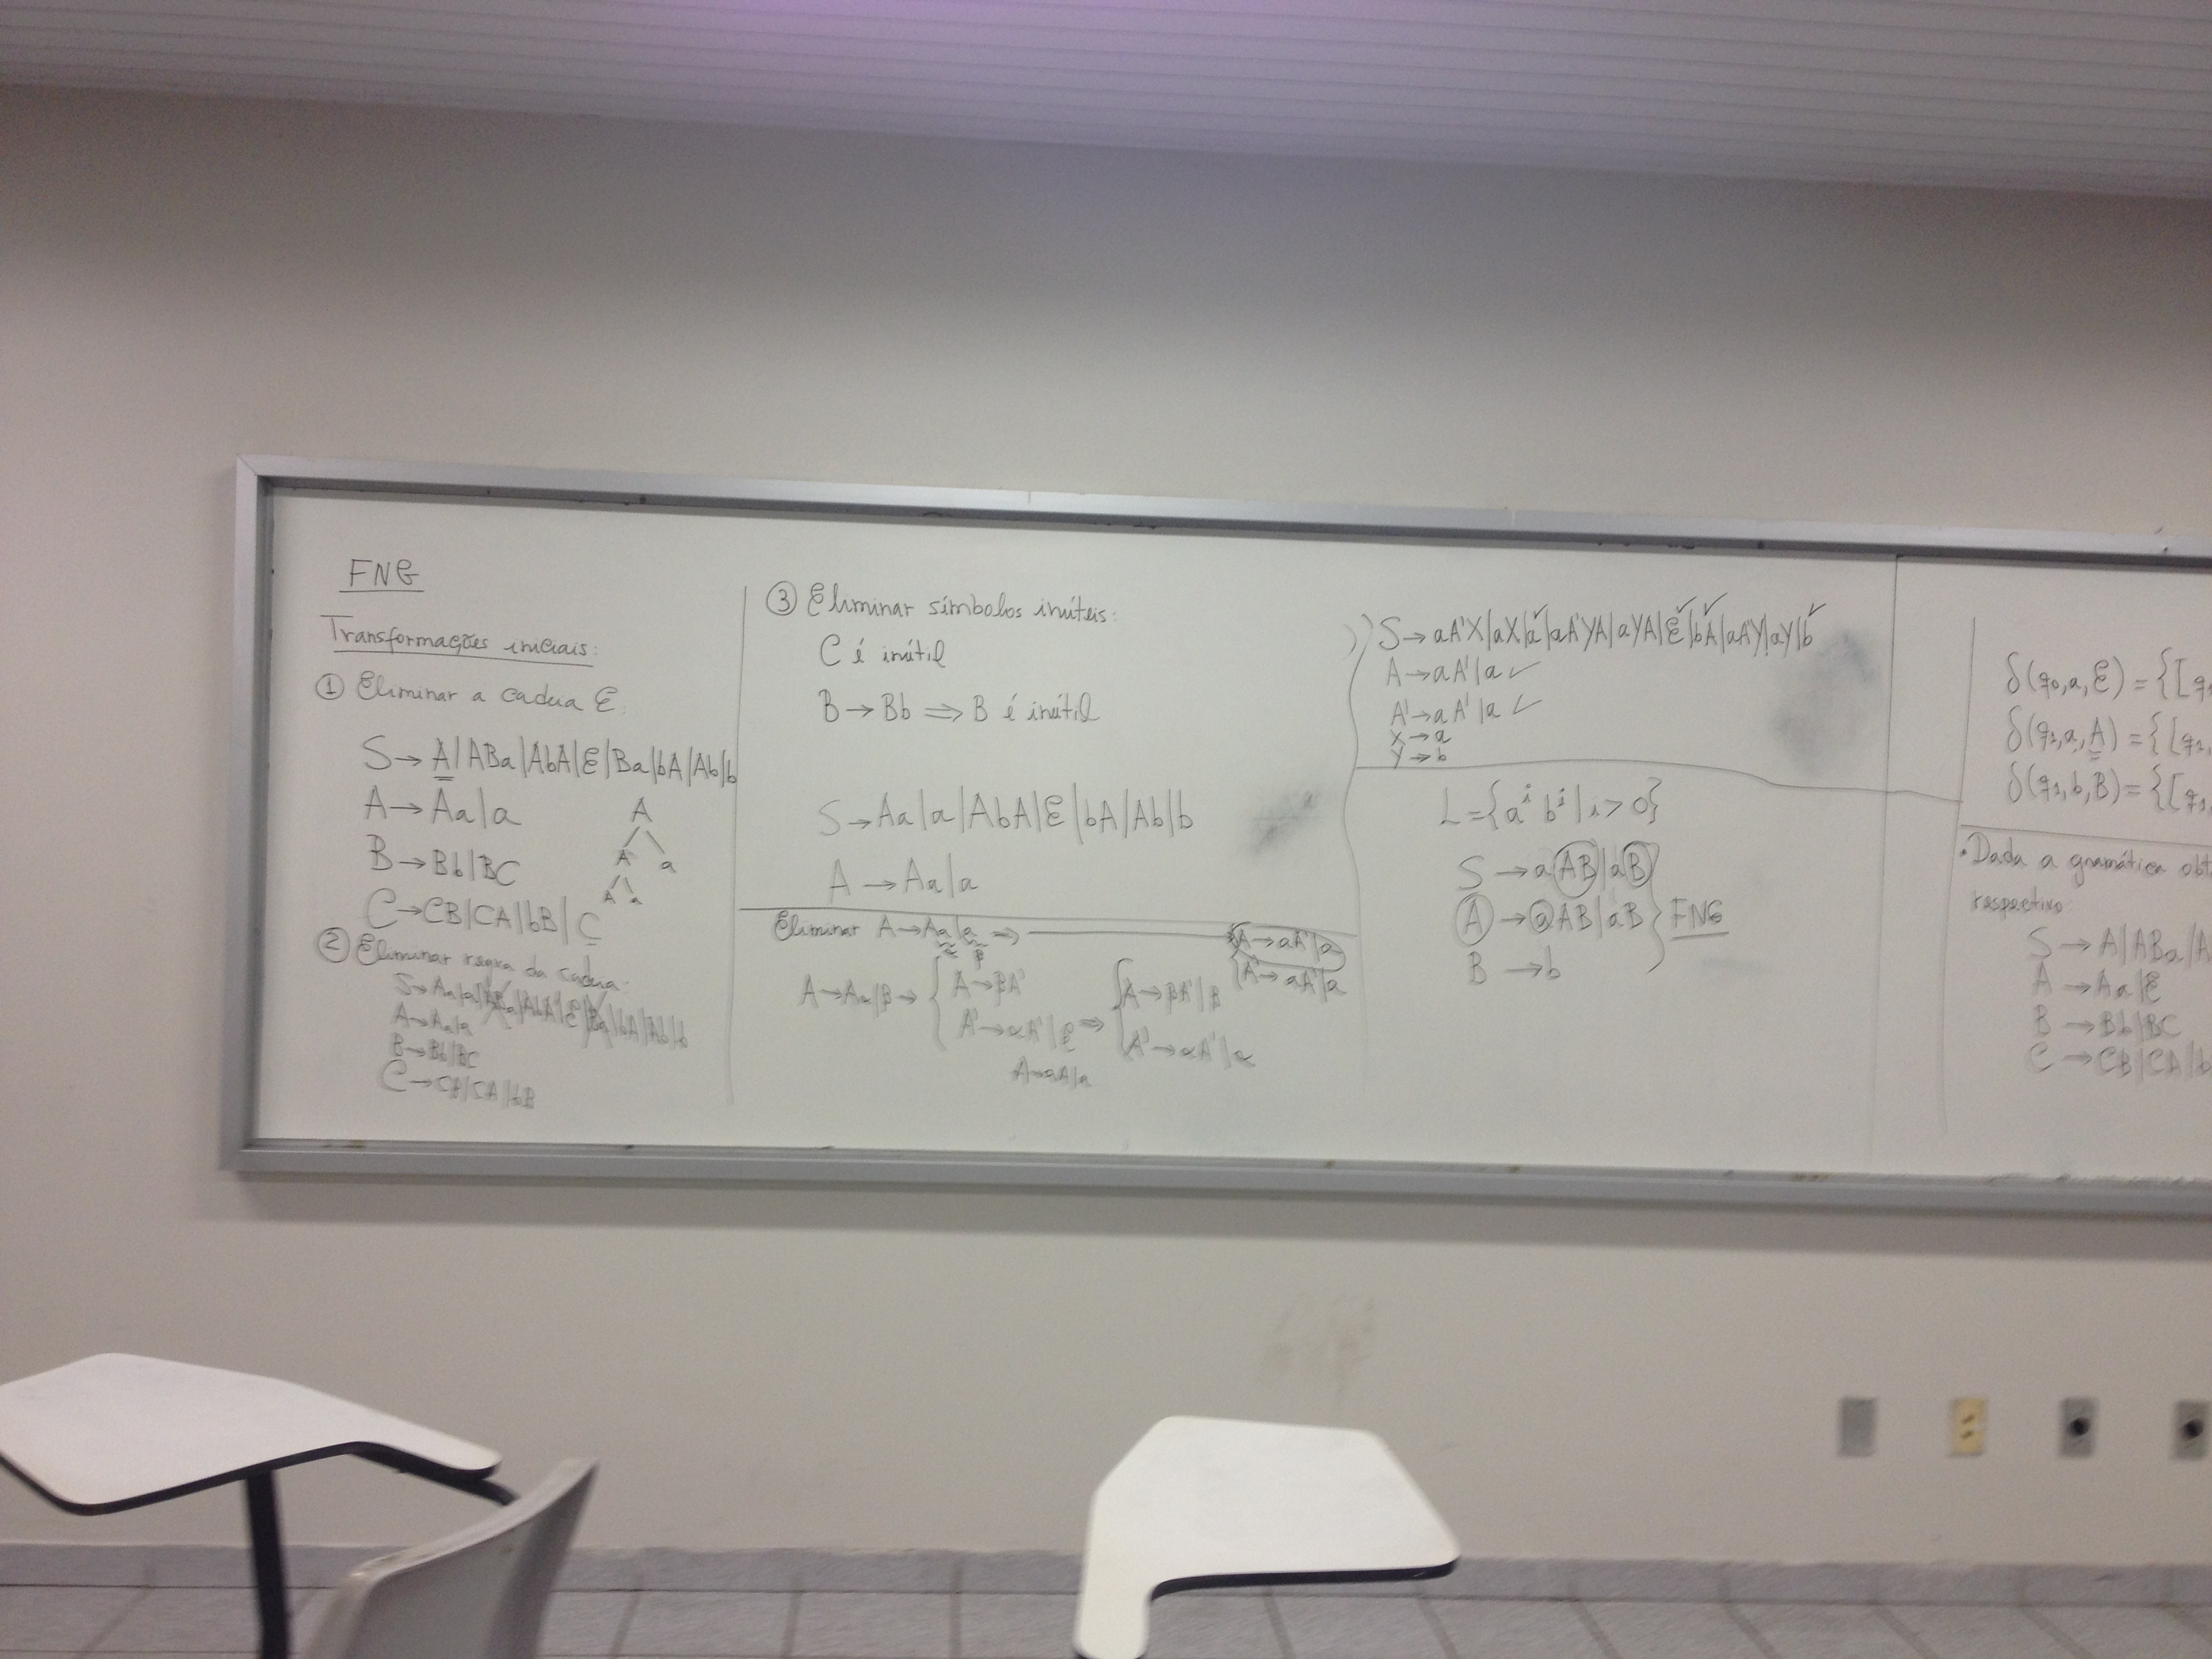 FNG
Transformações iniciais:
① Eliminar a cadeia ε
S → A|ABa|AbA|ε|Ba|bA|Ab|b
A → Aa|a
B → Bb|BC
C → CB|CA|bB|C
A
A a
A a
② Eliminar regra da cadeia:
S → Aa|a|ABa|AbA|ε|Ba|bA|Ab|b
A → Aa|a
B → Bb|BC
C → CB|CA|bB
③ Eliminar símbolos inúteis:
C é inútil
B → Bb ⟹ B é inútil
S → Aa|a|AbA|ε|bA|Ab|b
A → Aa|a
Eliminar A → Aa|a ⟹ A → aA'|a
α β A' → aA'|a
A → Aα|β → { A → βA' { A → βA'|β
A' → αA'|ε ⟹ A' → αA'|α
A → aA|a
S → aA'X|aX|a|aA'YA|aYA|ε|bA|aA'Y|aY|b
A → aA'|a ✓
A' → aA'|a ✓
X → a
Y → b
L = {aⁱ bⁱ | i > 0}
S → aAB|aB
A → aAB|aB } FNG
B → b
δ(q₀,a,ε) = {[q
δ(q₁,a,A) = {[q₁,
δ(q₁,b,B) = {[q₁,
• Dada a gramática
respectivo:
S → A|ABa|A
A → Aa|ε
B → Bb|BC
C → CB|CA|b